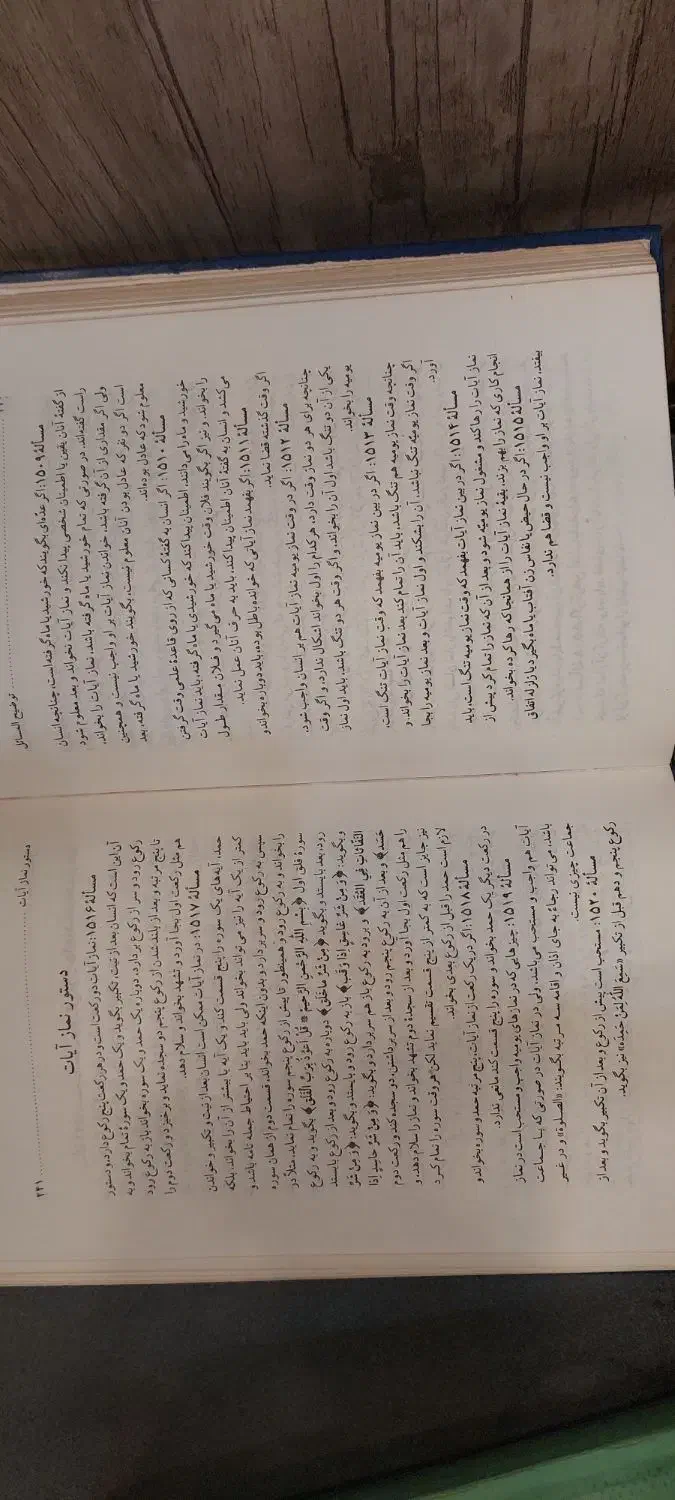 توضیح المسائل
مسألهٔ ۱۵۰۹: اگر عدّه‌ای بگویند که خورشید یا ماه گرفته است، چنانچه انسان
از گفتهٔ آنان یقین یا اطمینان شخصی پیدا نکند و نماز آیات نخواند و بعد معلوم شود
راست گفته‌اند، در صورتی که تمام خورشید یا ماه گرفته باشد، نماز آیات را بخواند.
ولی اگر مقداری از آن گرفته باشد، خواندن نماز آیات بر او واجب نیست و همچنین
است اگر دو نفر که عادل بودن آنان معلوم نیست، بگویند خورشید یا ماه گرفته، بعد
معلوم شود که عادل بوده‌اند.
مسألهٔ ۱۵۱۰: اگر انسان به گفتهٔ کسانی که از روی قاعدهٔ علمی وقت گرفتن
خورشید و ماه را می‌دانند، اطمینان پیدا کند که خورشیدی یا ماه گرفته، باید نماز آیات
را بخواند. و نیز اگر بگویند فلان وقت خورشید یا ماه می‌گیرد و فلان مقدار طول
می‌کشد و انسان به گفتهٔ آنان اطمینان پیدا کند، باید به حرف آنان عمل نماید.
مسألهٔ ۱۵۱۱: اگر بفهمد نماز آیاتی که خوانده باطل بوده، باید دوباره بخواند و
اگر وقت گذشته قضا نماید.
مسألهٔ ۱۵۱۲: اگر در وقت نماز یومیه نماز آیات هم بر انسان واجب شود،
چنانچه برای هر دو نماز وقت دارد، هر کدام را اول بخواند اشکال ندارد، و اگر وقت
یکی از آن دو تنگ باشد اول آن را بخواند، و اگر وقت هر دو تنگ باشد، باید اول نماز
یومیه را بخواند.
مسألهٔ ۱۵۱۳: اگر در بین نماز یومیه بفهمد که وقت نماز آیات تنگ است،
چنانچه وقت نماز یومیه هم تنگ باشد، باید آن را تمام کند بعد نماز آیات را بخواند، و
اگر وقت نماز یومیّه تنگ نباشد، آن را بشکند و اول نماز آیات و بعد نماز یومیه را بجا
آورد.
مسألهٔ ۱۵۱۴: اگر در بین نماز آیات بفهمد که وقت نماز یومیه تنگ است، باید
نماز آیات را رها کند و مشغول نماز یومیّه شود و بعد از آن که نماز را تمام کرد پیش از
انجام کاری که نماز را بهم بزند، بقیهٔ نماز آیات را از همانجا که رها کرده بخواند.
مسألهٔ ۱۵۱۵: اگر در حال حیض یا نفاس زن آفتاب یا ماه بگیرد یا زلزله اتفاق
بیفتد، نماز آیات بر او واجب نیست و قضا هم ندارد.
دستور نماز آیات ۲۴۱
دستور نماز آیات
مسألهٔ ۱۵۱۶: نماز آیات دو رکعت است و در هر رکعت پنج رکوع دارد، و دستور
آن این است که انسان بعد از نیّت، تکبیر بگوید و یک حمد و یک سورهٔ تمام بخواند و به
رکوع رود و سر از رکوع بردارد، دوباره یک حمد و یک سوره بخواند باز به رکوع رود
تا پنج مرتبه و بعد از بلند شدن از رکوع پنجم دو سجده نماید و برخیزد و رکعت دوم را
هم مثل رکعت اول بجا آورد و تشهد بخواند و سلام دهد.
مسألهٔ ۱۵۱۷: در نماز آیات ممکن است انسان بعد از نیت و تکبیر و خواندن
حمد، آیه‌های یک سوره را پنج قسمت کند و یک آیه یا بیشتر از آن را بخواند، بلکه
کمتر از یک آیه را نیز می‌تواند بخواند ولی باید بنا بر احتیاط جمله تامه باشد و
سپس به رکوع رود و سر بردارد و بدون اینکه حمد بخواند، قسمت دوم از همان سوره
را بخواند و به رکوع رود و همینطور تا پیش از رکوع پنجم سوره را تمام نماید، مثلاً در
سورهٔ فلق اول ﴿بِسْمِ اللهِ الرَّحْمنِ الرَّحِیمِ * قُلْ أَعُوذُ بِرَبِّ الْفَلَقِ﴾ بگوید و به رکوع
رود، بعد بایستد و بگوید ﴿مِنْ شَرِّ مَا خَلَقَ﴾ دوباره به رکوع رود و بعد از رکوع بایستد
و بگوید: ﴿وَ مِنْ شَرِّ غَاسِقٍ إِذَا وَقَبَ﴾ باز به رکوع رود و بایستد و بگوید: ﴿وَ مِنْ شَرِّ
النَّفَّاثَاتِ فِی الْعُقَدِ﴾ و برود به رکوع باز هم سر بردارد و بگوید: ﴿وَ مِنْ شَرِّ حَاسِدٍ إِذَا
حَسَدَ﴾ و بعد از آن به رکوع پنجم رود و بعد از سر برداشتن، دو سجده کند و رکعت دوم
را هم مثل رکعت اول بجا آورد و بعد از سجدهٔ دوم تشهد بخواند و نماز را سلام دهد. و
نیز جایز است که به کمتر از پنج قسمت تقسیم نماید لکن هر وقت سوره را تمام کرد
لازم است حمد را قبل از رکوع بعدی بخواند.
مسألهٔ ۱۵۱۸: اگر در یک رکعت از نماز آیات، پنج مرتبه حمد و سوره بخواند و
در رکعت دیگر یک حمد بخواند و سوره را پنج قسمت کند مانعی ندارد.
مسألهٔ ۱۵۱۹: چیزهایی که در نمازهای یومیه واجب و مستحب است در نماز
آیات هم واجب و مستحب می‌باشد، ولی در نماز آیات در صورتی که با جماعت
باشد، می‌تواند رجاءً به جای اذان و اقامه سه مرتبه بگویند: «الصلوة» و در غیر
جماعت چیزی نیست.
مسألهٔ ۱۵۲۰: مستحب است پیش از رکوع و بعد از آن تکبیر بگوید و بعد از
رکوع پنجم و دهم قبل از تکبیر «سَمِعَ اللهُ لِمَنْ حَمِدَه» نیز بگوید.